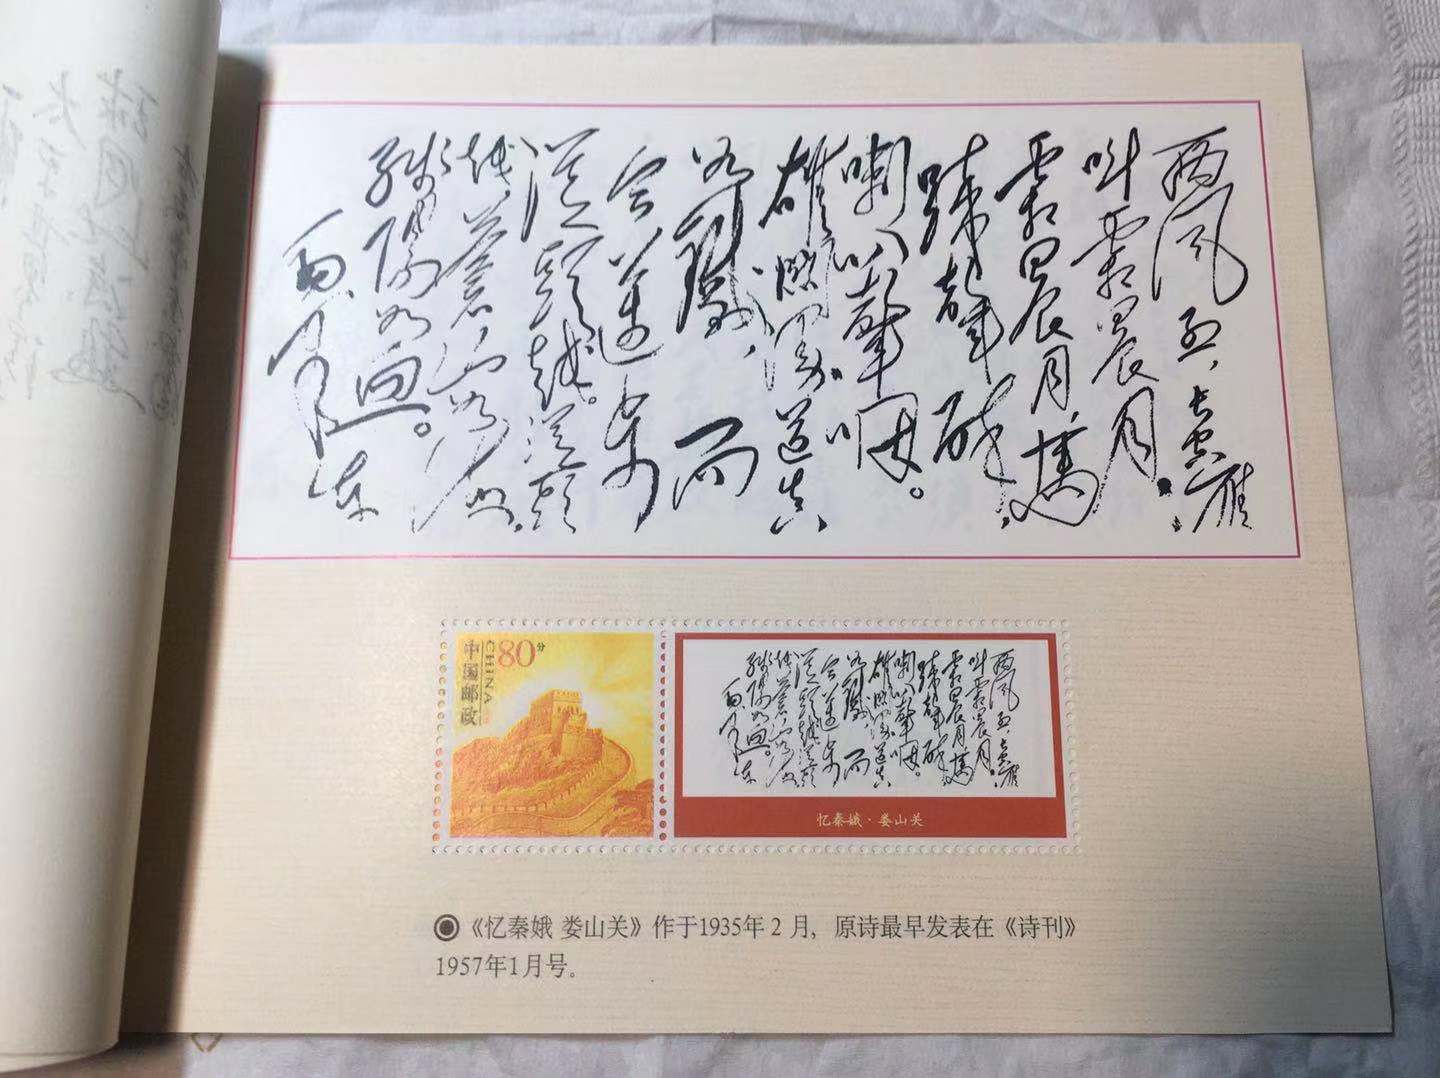 西风烈,长空雁
叫霜晨月。
霜晨月,马
蹄声碎,
喇叭声咽。
雄关漫道真
如铁,而
今迈步
从头越。从头
越,苍山如海,
残阳如血。
毛泽东
中国邮政
CHINA
80分
西风烈,长空雁
叫霜晨月。
霜晨月,马
蹄声碎,
喇叭声咽。
雄关漫道真
如铁,而
今迈步
从头越。从头
越,苍山如海,
残阳如血。
毛泽东
忆秦娥·娄山关
《忆秦娥 娄山关》作于1935年2月,原诗最早发表在《诗刊》
1957年1月号。